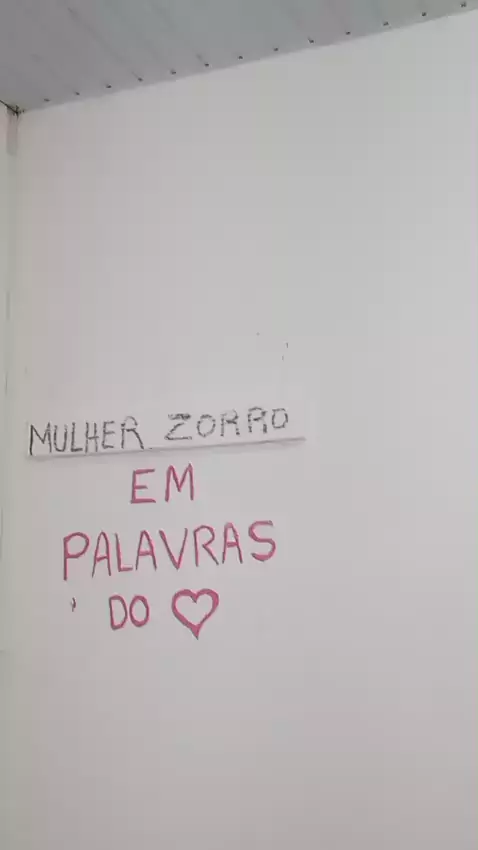 MULHER ZORRO
EM
PALAVRAS
DO ♡